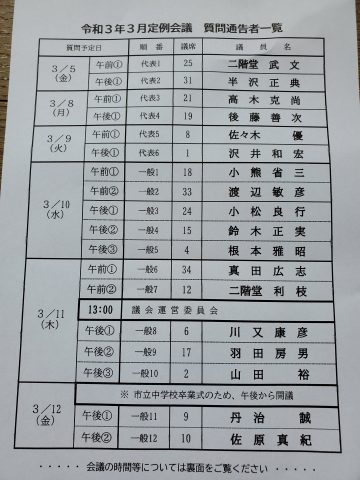 令和3年3月定例会議 質問通告者一覧
質問予定日 順番 議席 議員名
3/5(金) 午前① 代表1 25 二階堂 武文
午後① 代表2 31 半沢 正典
3/8(月) 午前① 代表3 21 高木 克尚
午後① 代表4 19 後藤 善次
3/9(火) 午前① 代表5 8 佐々木 優
午後① 代表6 1 沢井 和宏
3/10(水) 午前① 一般1 18 小熊 省三
午前② 一般2 33 渡辺 敏彦
午後① 一般3 24 小松 良行
午後② 一般4 15 鈴木 正実
午後③ 一般5 4 根本 雅昭
3/11(木) 午前① 一般6 34 真田 広志
午前② 一般7 12 二階堂 利枝
13:00 議会運営委員会
午後① 一般8 6 川又 康彦
午後② 一般9 17 羽田 房男
午後③ 一般10 2 山田 裕
3/12(金) ※ 市立中学校卒業式のため、午後から開議
午後① 一般11 9 丹治 誠
午後② 一般12 10 佐原 真紀
・・・・・会議の時間等については裏面をご覧ください・・・・・